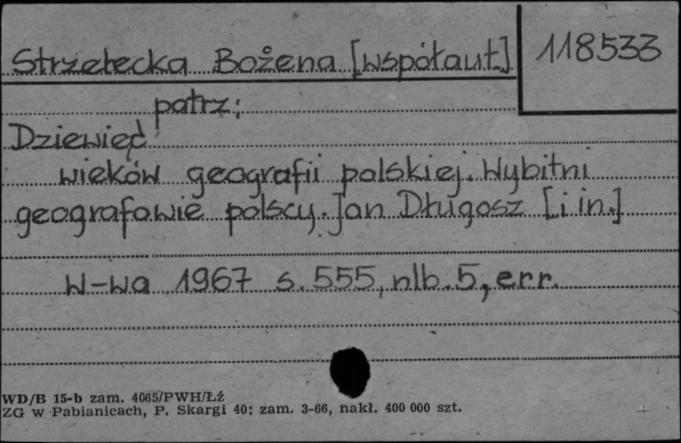 Strzelecka Bożena [współaut.] 118533
patrz:
Dziewięć
wieków geografii polskiej. Wybitni
geografowie polscy. Jan Długosz [i in.]
W-wa 1967 s. 555, nlb. 5, err.
WD/B 15-b zam. 4065/PWH/Łź
ZG w Pabianicach, P. Skargi 40; zam. 3-66, nakł. 400 000 szt.